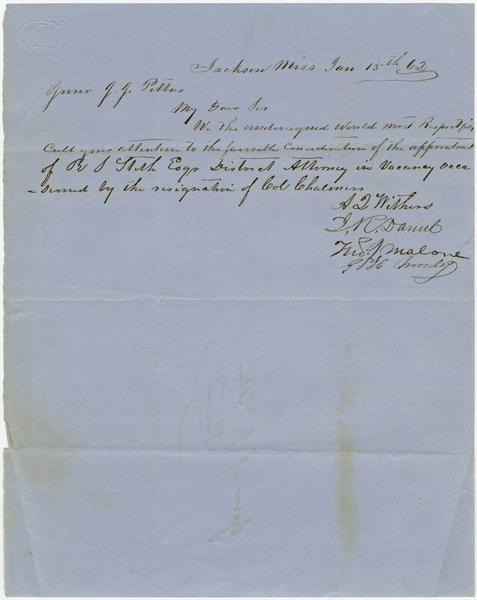 Jackson Miss Jan 15th, 62
Govnr J. J. Pettus
My Dear Sir
We the undersigned would most Respectfuly
Call your attention to the favorable Consideration of the appointment
of R S Stith Esqr District Attorney in Vacancy occa
-sioned by the resignation of Col Chalmers
A Q Withers
J. R. Daniel
Thos J Malone